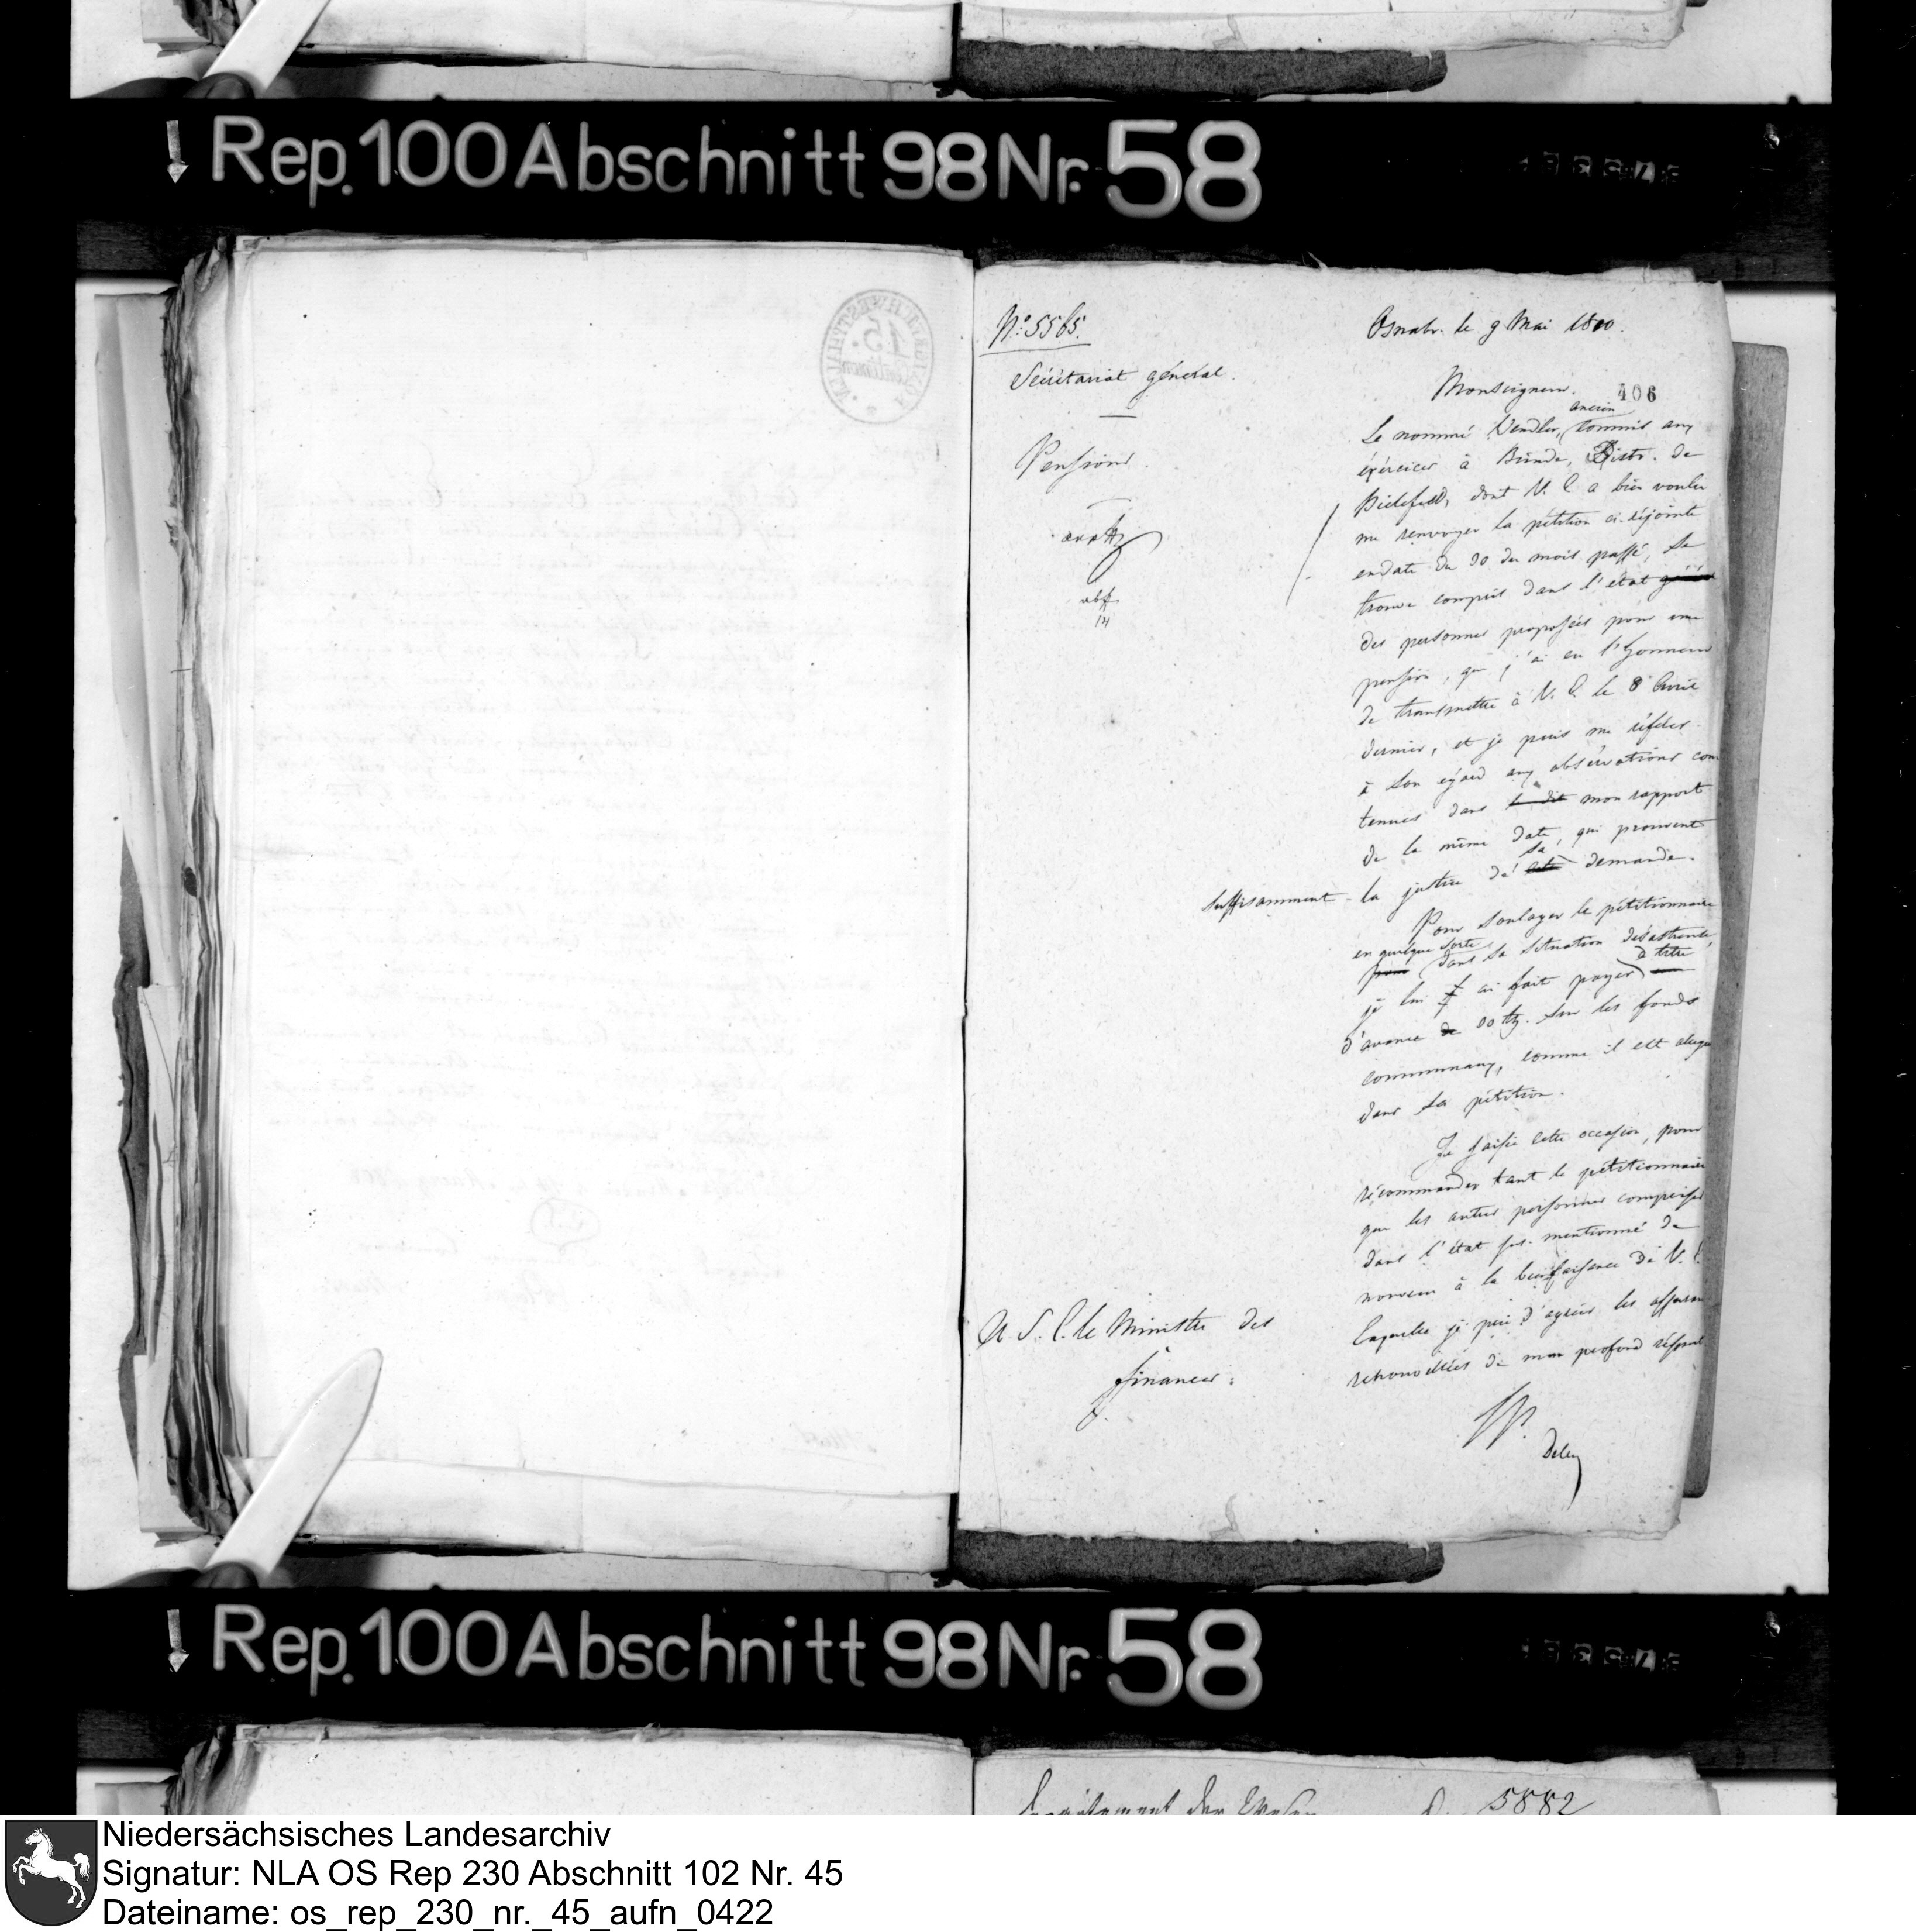 Rep. 100 Abschnitt 98 Nr. 58
No. 5565.
Osnabr. le 9 Mai 1810.
Secrétariat général.
Monseigneur.
406
Pensions.
ancien
Le nommé Wendler, commis aux
exercices à Bünde, Distr. de
Bielefeld, dont V. E. a bien voulu
me renvoyer la pétition ci-déjointe
en date du 30 du mois passé, se
trouve compris dans l'état
des personnes proposées pour une
pension, que j'ai eu l'honneur
de transmettre à V. E. le 8 Avril
dernier, et je puis me référer
à son égard aux observations con
tenues dans le dit mon rapport
de la même date, qui prouvent
sa
suffisamment la justice de cette demande.
Pour soulager le pétitionnaire
en quelque sorte
dans sa situation désastreuse,
à titre
je lui ai fait payer
d'avance de 00 sur les fonds
communaux, comme il est allegué
dans sa pétition.
Je saisis cette occasion, pour
récommander tant le pétitionnaire
que les autres personnes comprises
dans l'état sus-mentionné de
nouveau à la bienfaisance de V. E.
laquelle je prie d'agréer les assuran
renouvellées de mon profond réspect
A S. E. le Ministre des
finances.
Rep. 100 Abschnitt 98 Nr. 58
5882
Niedersächsisches Landesarchiv
Signatur: NLA OS Rep 230 Abschnitt 102 Nr. 45
Dateiname: os_rep_230_nr._45_aufn_0422